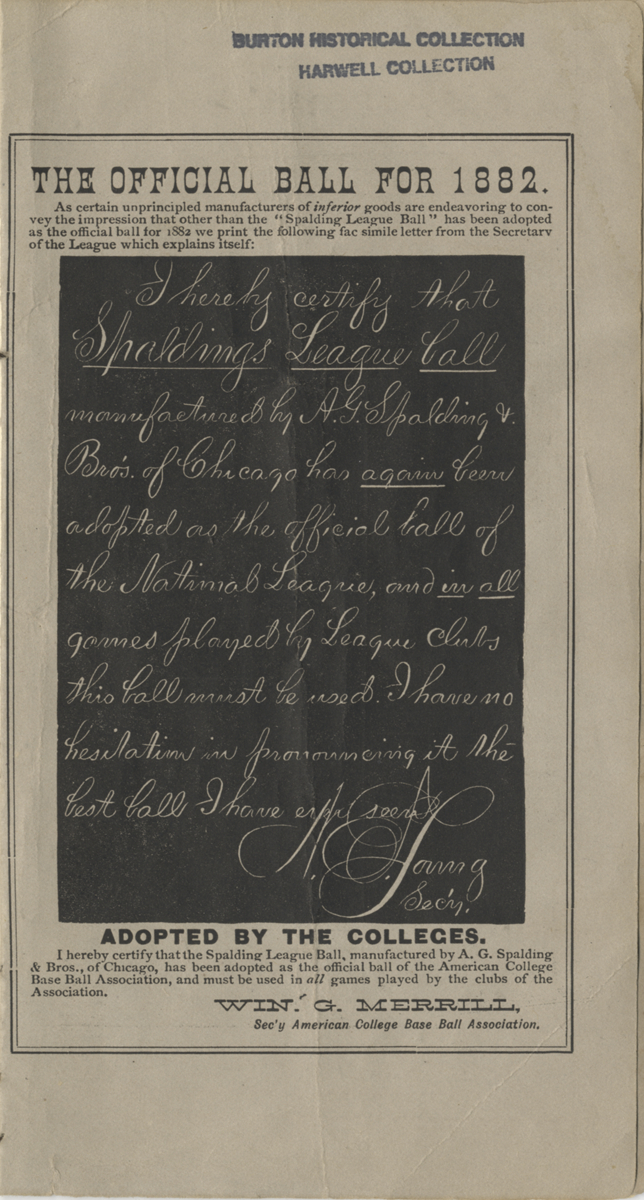 BURTON HISTORICAL COLLECTION
HARWELL COLLECTION
THE OFFICIAL BALL FOR 1882.
As certain unprincipled manufacturers of inferior goods are endeavoring to con-
vey the impression that other than the "Spalding League Ball" has been adopted
as the official ball for 1882 we print the following fac simile letter from the Secretary
of the League which explains itself:
I hereby certify that
Spaldings League ball
manufactured by A. G. Spalding &
Bro's. of Chicago has again been
adopted as the official ball of
the National League, and in all
games played by League Clubs
this ball must be used. I have no
hesitation in pronouncing it the
best ball I have ever seen
N. E. Young
Sec'y.
ADOPTED BY THE COLLEGES.
I hereby certify that the Spalding League Ball, manufactured by A. G. Spalding
& Bros., of Chicago, has been adopted as the official ball of the American College
Base Ball Association, and must be used in all games played by the clubs of the
Association.
WIN. G. MERRILL,
Sec'y American College Base Ball Association.